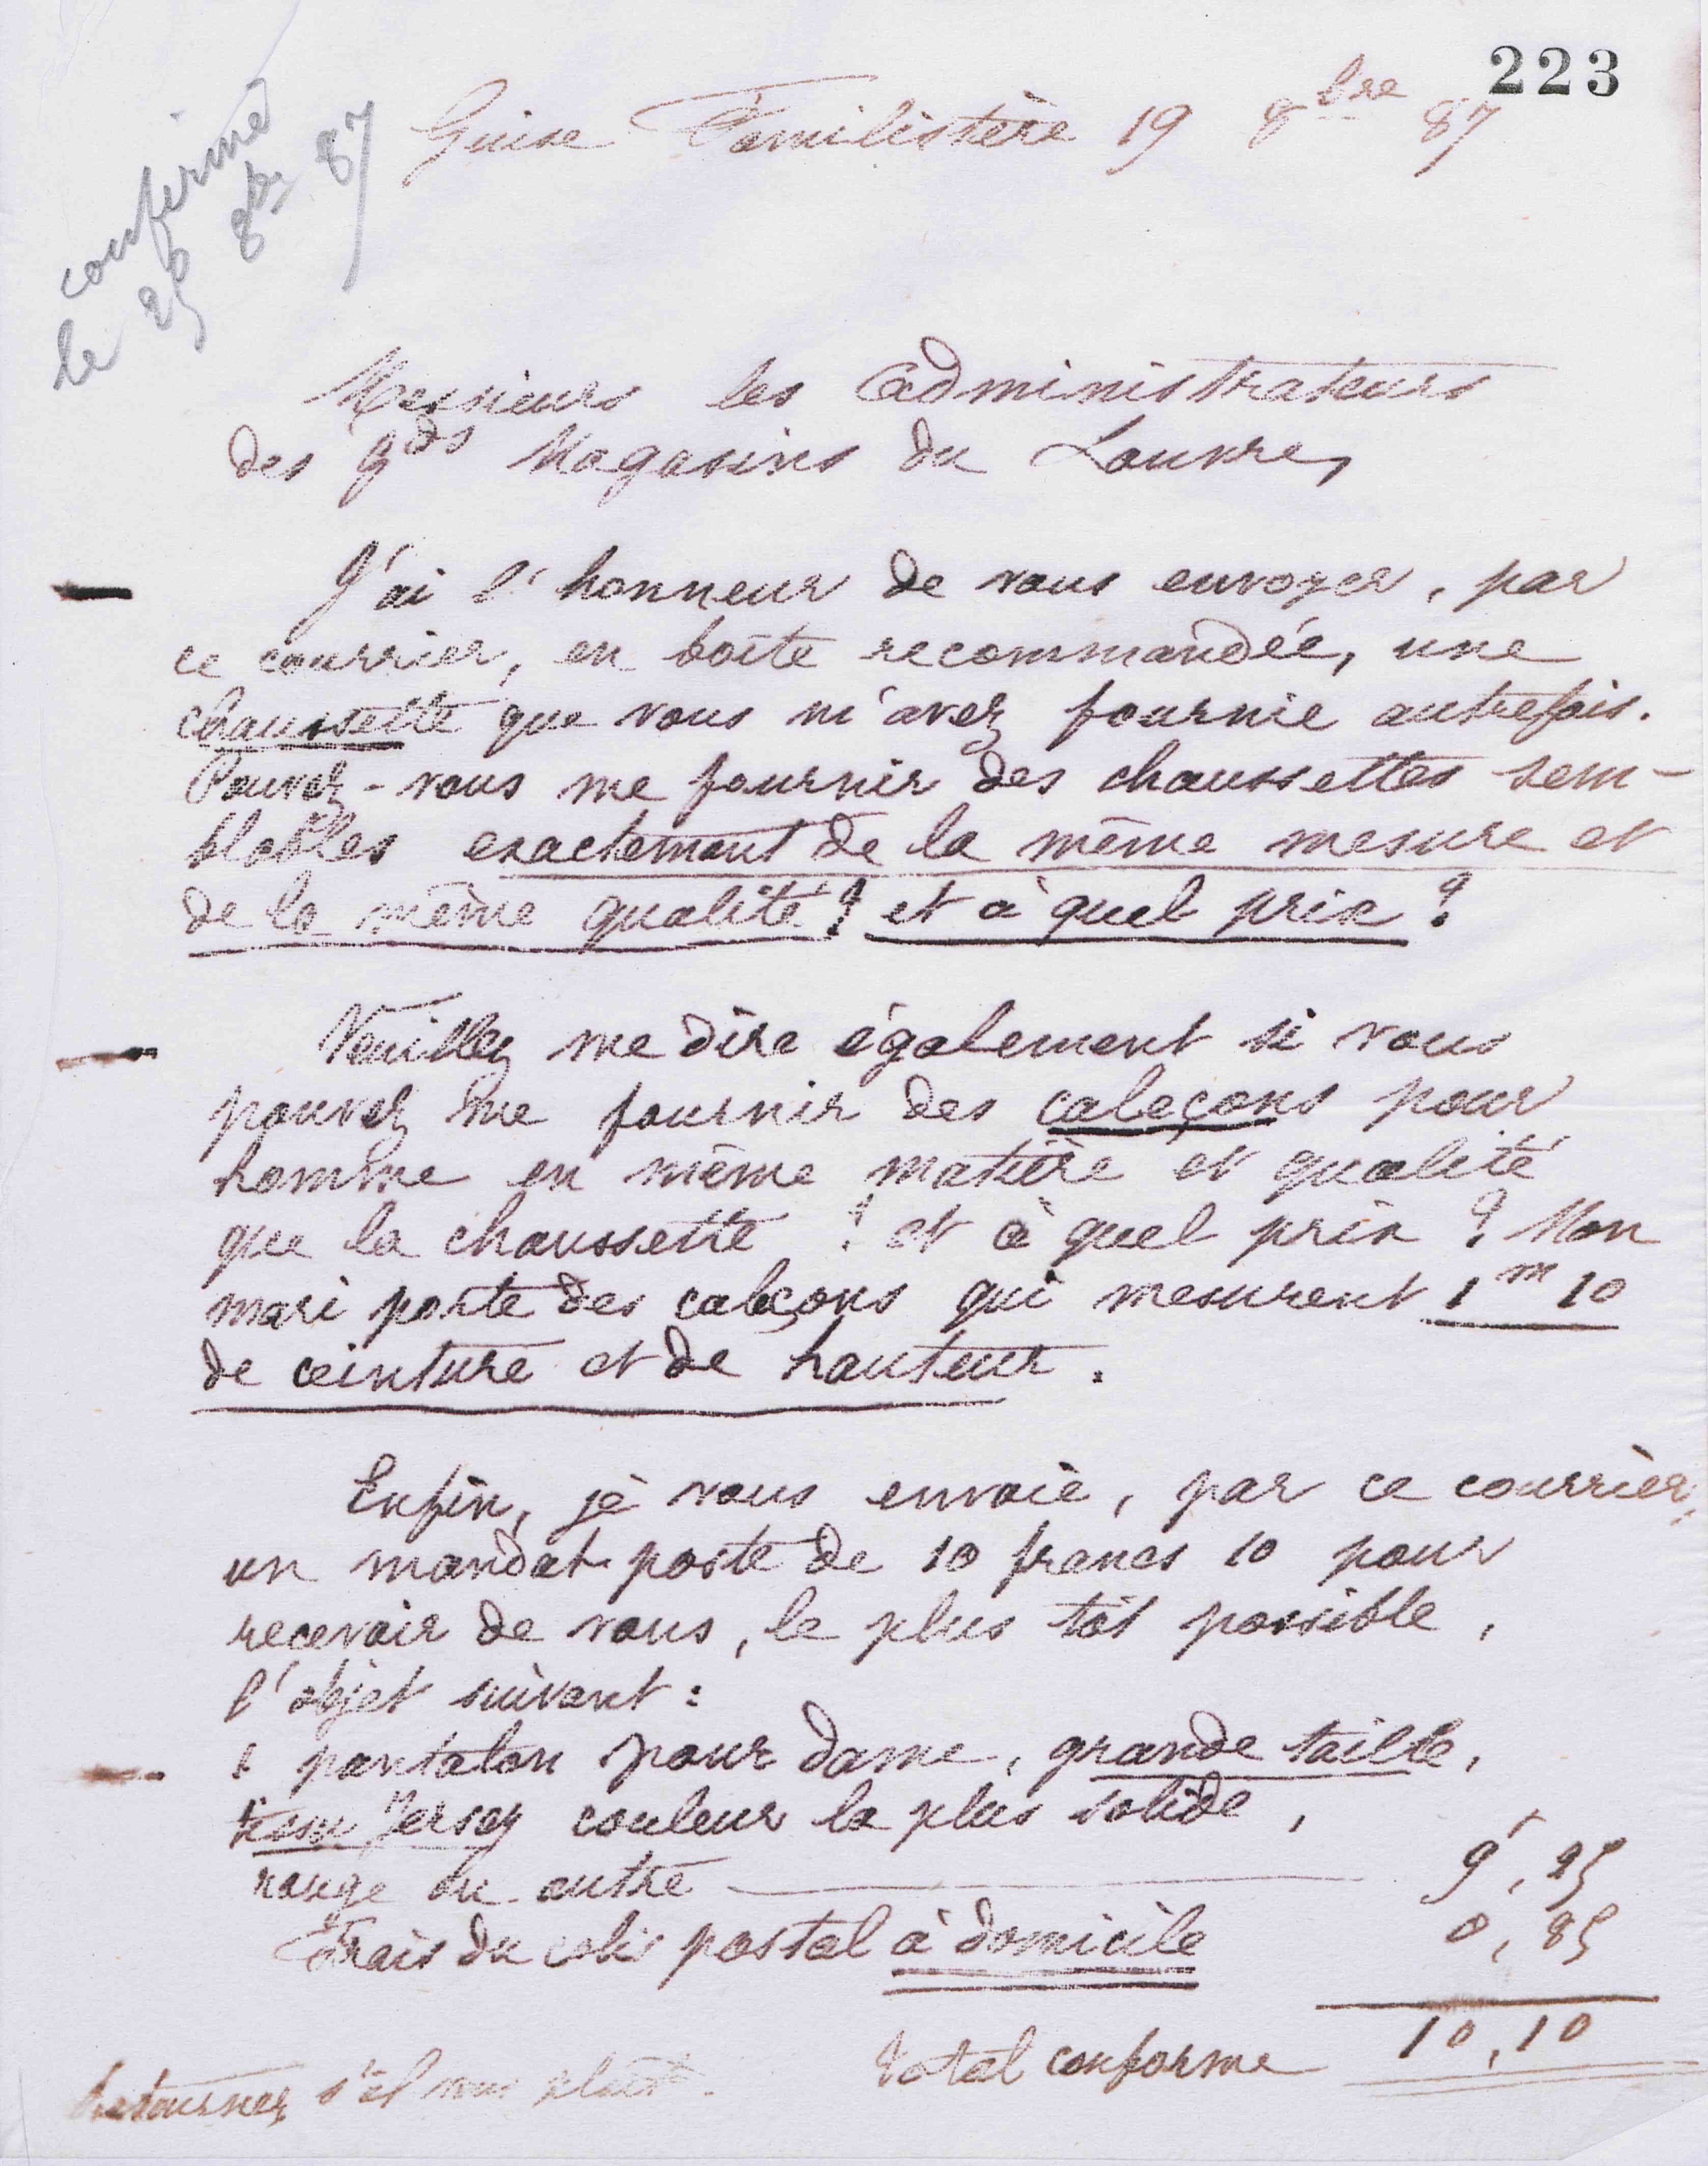 223
Guise Familistère 19 8bre 87
confirmé
le 25 8bre 87
Messieurs les administrateurs
des gds Magasins du Louvre,
J'ai l'honneur de vous envoyer, par
ce courrier, en boîte recommandée, une
chaussette que vous m'avez fournie autrefois.
Pouvez-vous me fournir des chaussettes sem-
blables exactement de la même mesure et
de la même qualité? et à quel prix?
Veuillez me dire également si vous
pouvez me fournir des caleçons pour
homme en même matière et qualité
que la chaussette ? et à quel prix ? Mon
mari porte des caleçons qui mesurent 1m10
de ceinture et de hauteur.
Enfin, je vous envoie, par ce courrier,
un mandat-poste de 10 francs 10 pour
recevoir de vous, le plus tôt possible,
l'objet suivant :
1 pantalon pour dame, grande taille,
tissu Jersey couleur la plus solide,
rouge ou autre 9f,25
Frais du colis postal à domicile 0,85
Total conforme 10,10
Retournez s'il vous plaît.